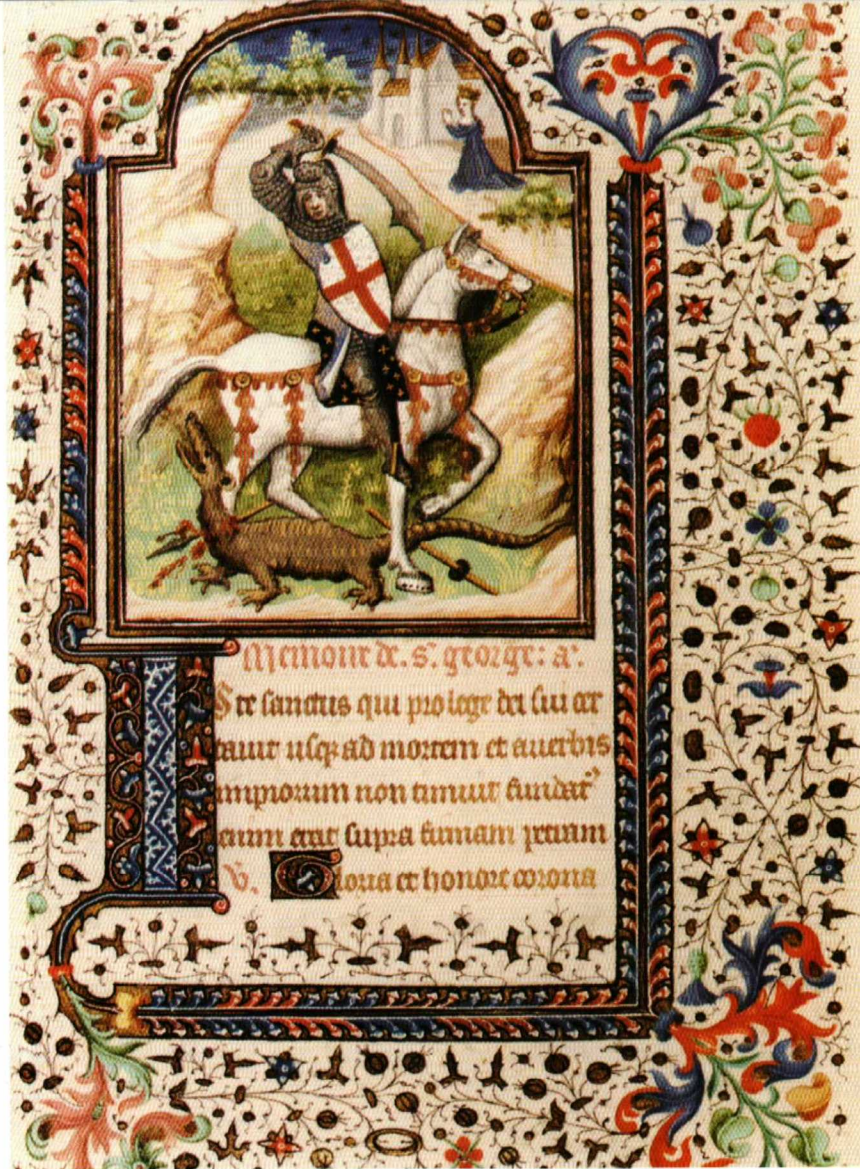 Memoire de. s. george: a.
Iste sanctus qui pro lege dei sui cer
tauit usq; ad mortem et a uerbis
impiorum non timuit fundat᾿
enim erat supra firmam petram
V. Gloria et honore corona